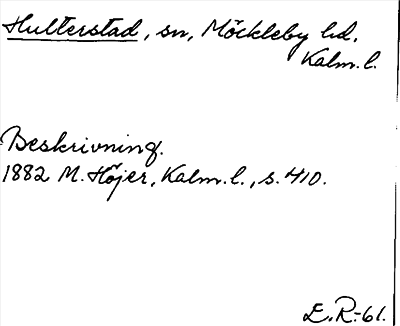 Hulterstad, sn, Möckleby hd.
Kalm. l.
Beskrivning.
1882 M. Höjer, Kalm. l., s. 410.
E.R.-61.